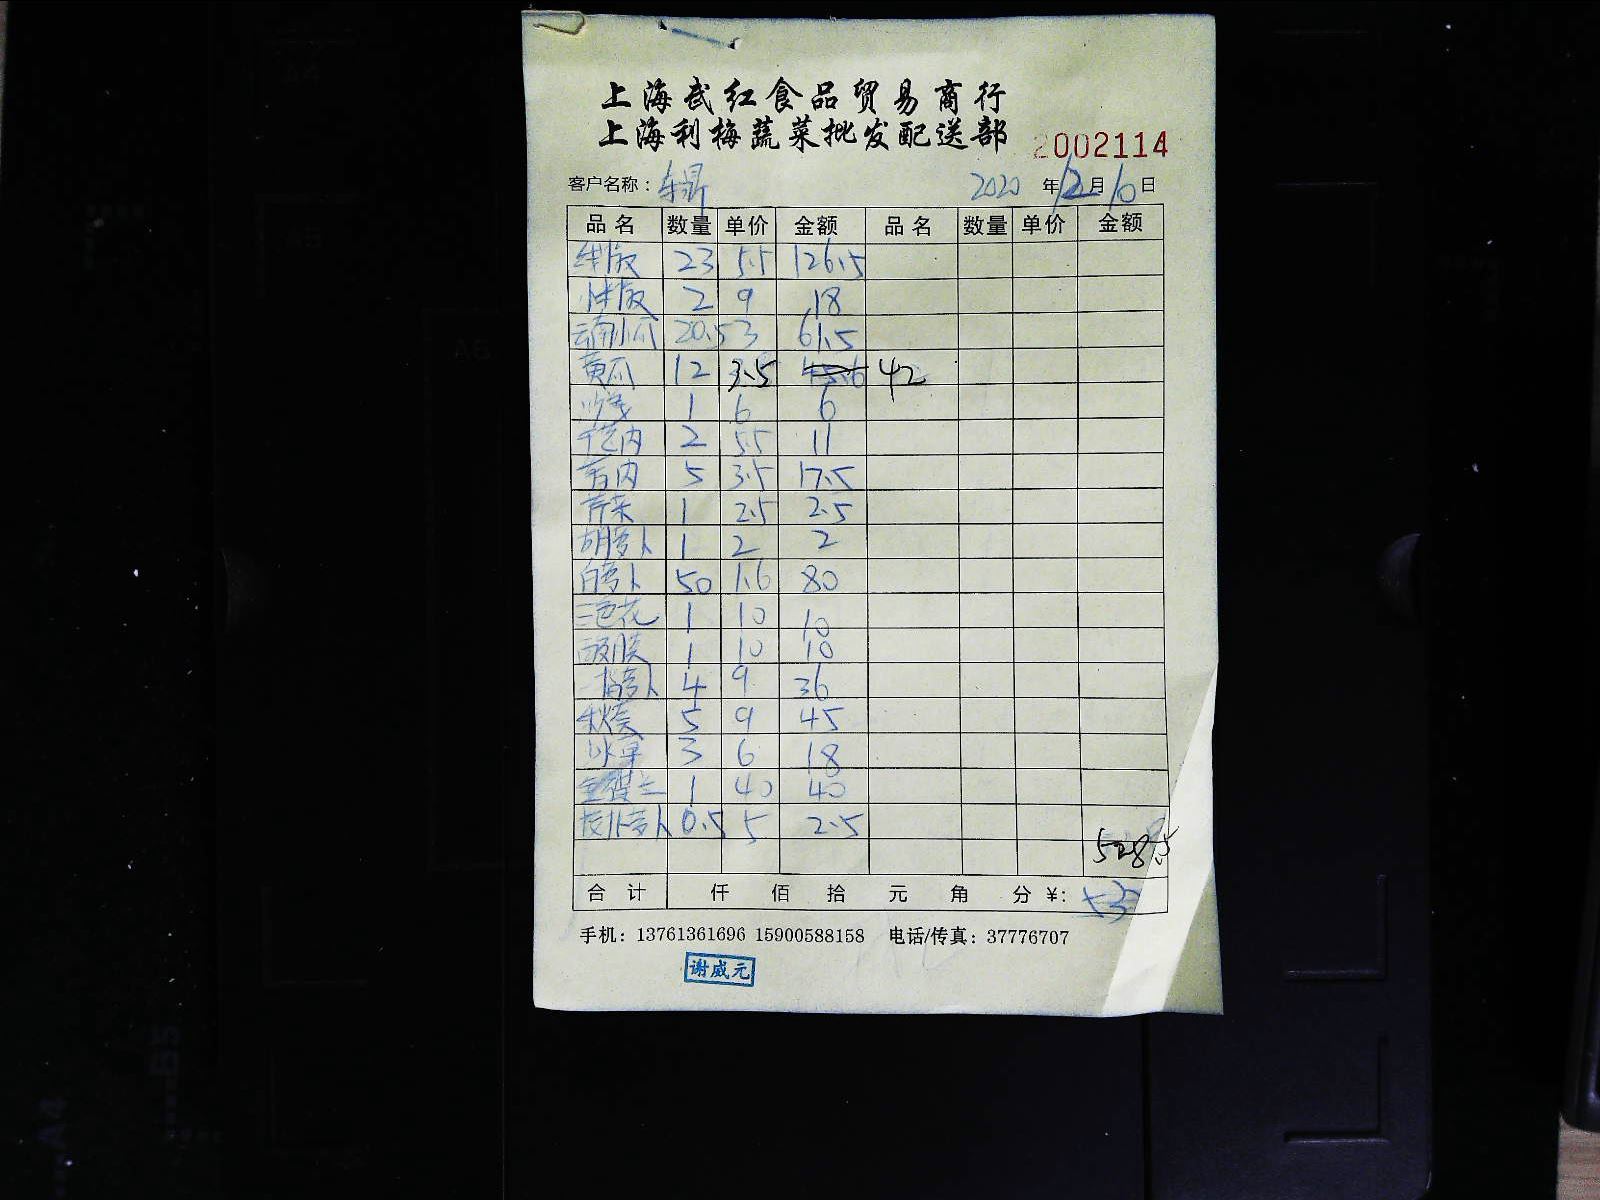 上海武红食品贸易商行
上海利梅蔬菜批发配送部
2002114
客户名称： 2020 年 12 月 10 日
品名 数量 单价 金额 品名 数量 单价 金额
23 5.5 126.5
2 9 18
云南小瓜 20.5 3 61.5
黄瓜 12 3.5 42
1 6 6
2 5.5 11
5 3.5 17.5
芹菜 1 2.5 2.5
胡萝卜 1 2 2
白萝卜 50 1.6 80
三色花 1 10 10
1 10 10
萝卜 4 9 36
秋葵 5 9 45
冰草 3 6 18
1 40 40
萝卜 0.5 5 2.5
528.5
合计 仟 佰 拾 元 角 分 ¥:
手机：13761361696 15900588158 电话/传真：37776707
谢威元